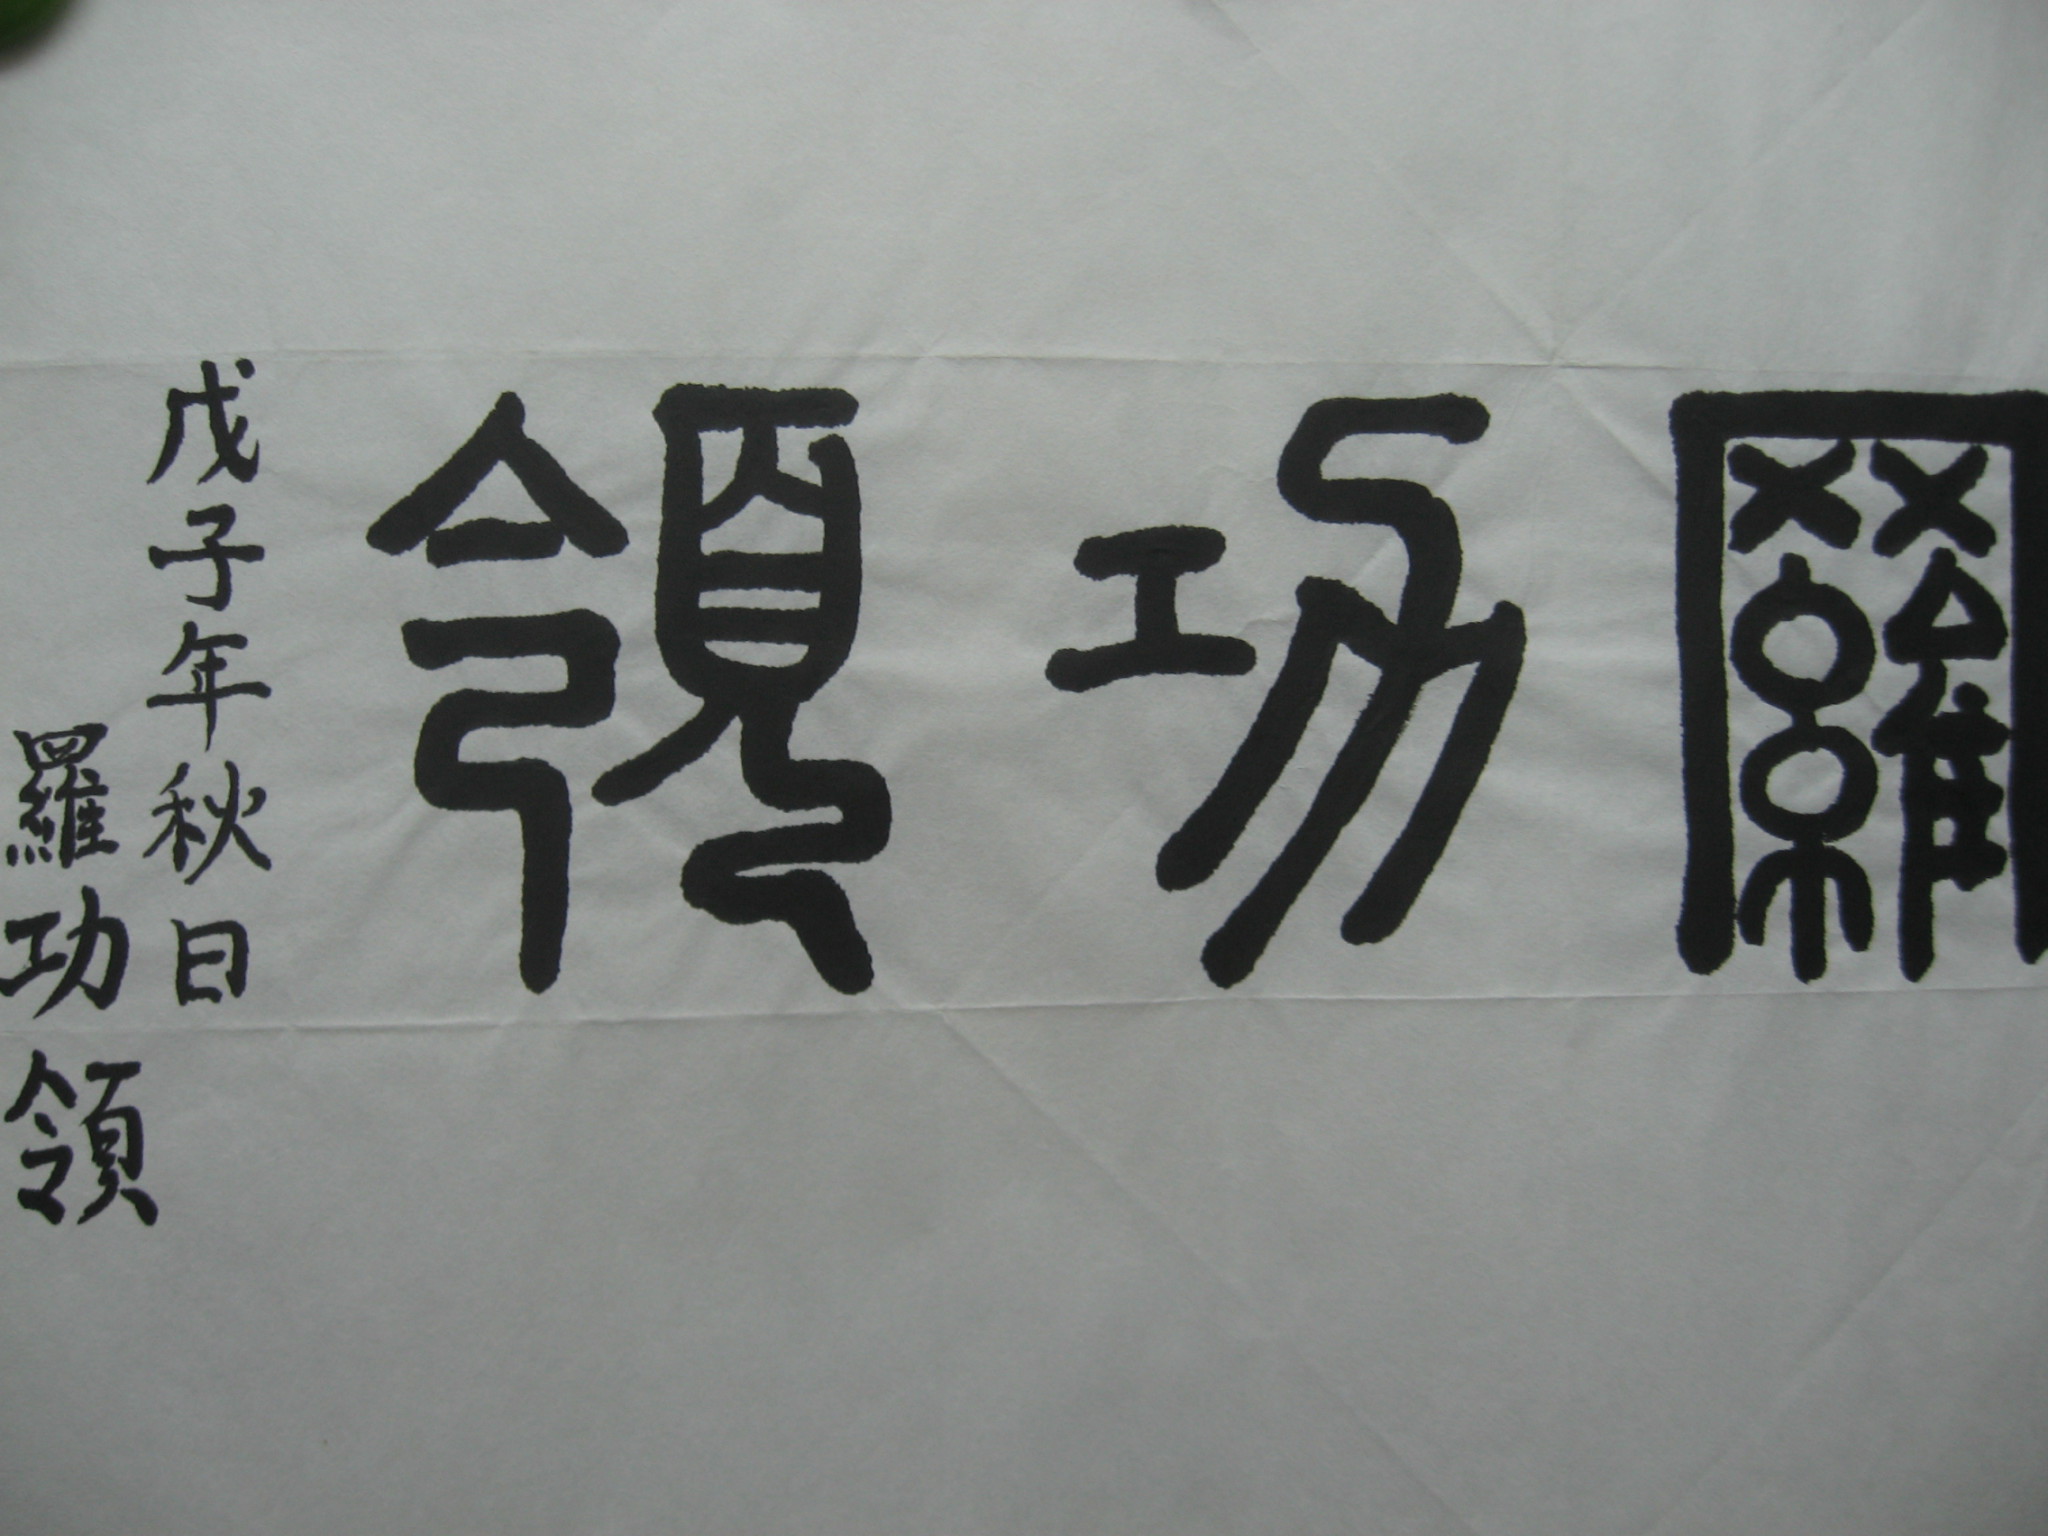 羅功領
戊子年秋日
羅功領